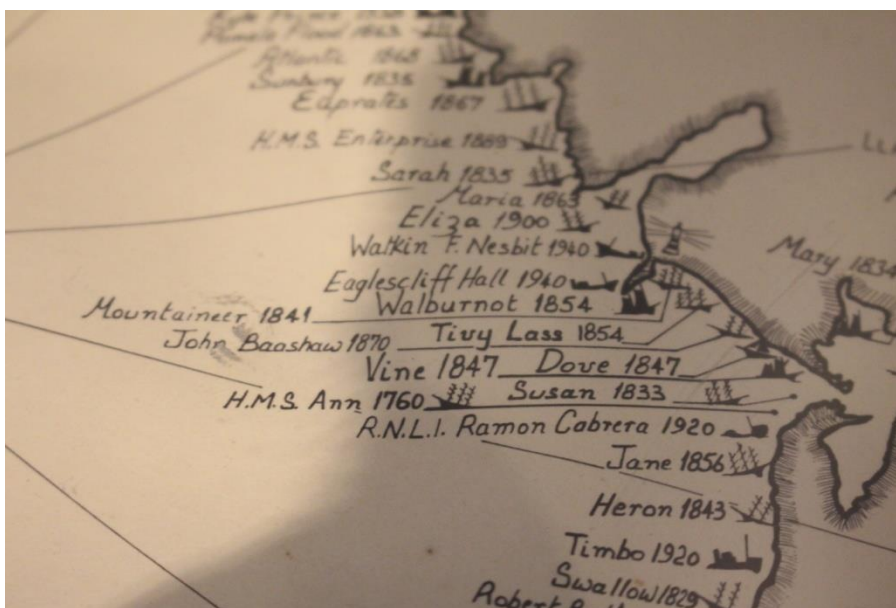 Pamela Flood 1863
Atlantic 1868
Sunbury 1835
Euprates 1867
H.M.S. Enterprise 1889
Sarah 1835
Maria 1863
Eliza 1900
Watkin F. Nesbit 1940
Eaglescliff Hall 1940
Mary 1834
Walburnot 1854
Mountaineer 1841
Tivy Lass 1854
John Baoshaw 1870
Vine 1847 Dove 1847
H.M.S. Ann 1760 Susan 1833
R.N.L.I. Ramon Cabrera 1920
Jane 1856
Heron 1843
Timbo 1920
Swallow 1829
Robert